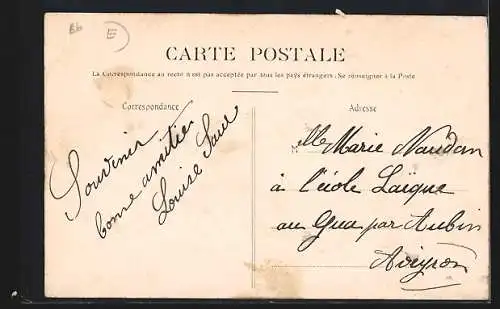 Bb E
CARTE POSTALE
La Correspondance au recto n'est pas acceptée par tous les pays étrangers; Se renseigner à la Poste
Correspondance
Adresse
Souvenir
bonne amitié
Louise
Mlle Marie Naudan
à l'école Laïque
au Gua par Aubin
Aveyron